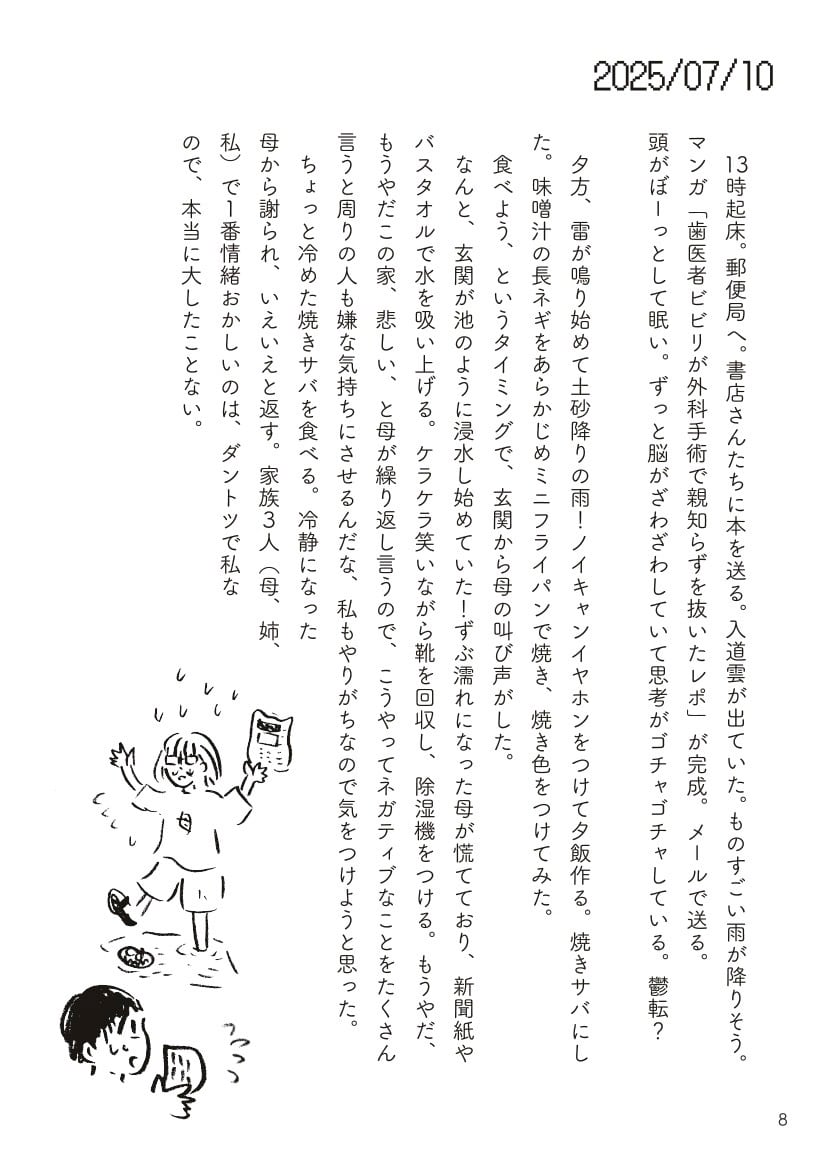 2025/07/10
13時起床。郵便局へ。書店さんたちに本を送る。入道雲が出ていた。ものすごい雨が降りそう。
マンガ「歯医者ビビリが外科手術で親知らずを抜いたレポ」が完成。メールで送る。
頭がぼーっとして眠い。ずっと脳がざわざわしていて思考がゴチャゴチャしている。鬱転？
夕方、雷が鳴り始めて土砂降りの雨！ノイキャンイヤホンをつけて夕飯作る。焼きサバにし
た。味噌汁の長ネギをあらかじめミニフライパンで焼き、焼き色をつけてみた。
食べよう、というタイミングで、玄関から母の叫び声がした。
なんと、玄関が池のように浸水し始めていた！ずぶ濡れになった母が慌てており、新聞紙や
バスタオルで水を吸い上げる。ケラケラ笑いながら靴を回収し、除湿機をつける。もうやだ、
もうやだこの家、悲しい、と母が繰り返し言うので、こうやってネガティブなことをたくさん
言うと周りの人も嫌な気持ちにさせるんだな、私もやりがちなので気をつけようと思った。
ちょっと冷めた焼きサバを食べる。冷静になった
母から謝られ、いえいえと返す。家族３人（母、姉、
私）で１番情緒おかしいのは、ダントツで私な
ので、本当に大したことない。
母
8